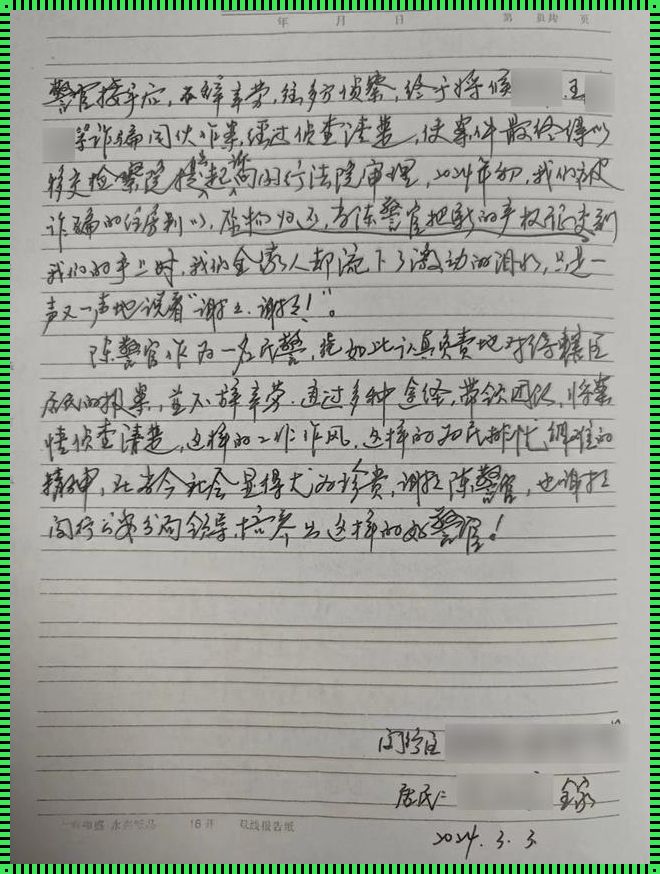 年 月 日 第 页共 页
警官接手后，不辞辛劳，经多方侦察，终于将侯 王
等诈骗团伙作案，经过侦查清楚，使案件最终得以
移交检察院提起公诉向闵行法院审理，2024年初，我们被
诈骗的住房判以，原物归还，当陈警官把新的产权证交到
我们的手上时，我们全家人都流下了激动的泪水，只是一
声又一声地说着“谢谢、谢谢！”。
陈警官作为一名民警，能如此认真负责地对待辖区
居民的报案，並不辞辛劳.通过多种途径，带领团队，将案
情侦查清楚，这样的工作作风，这样的为民排忧解难的
精神，在当今社会显得尤为珍贵，谢谢陈警官，也谢谢
闵行公安分局领导，培养出这样的好警官！
闵行区
居民： 全家
2024.3.3
16开 双线报告纸